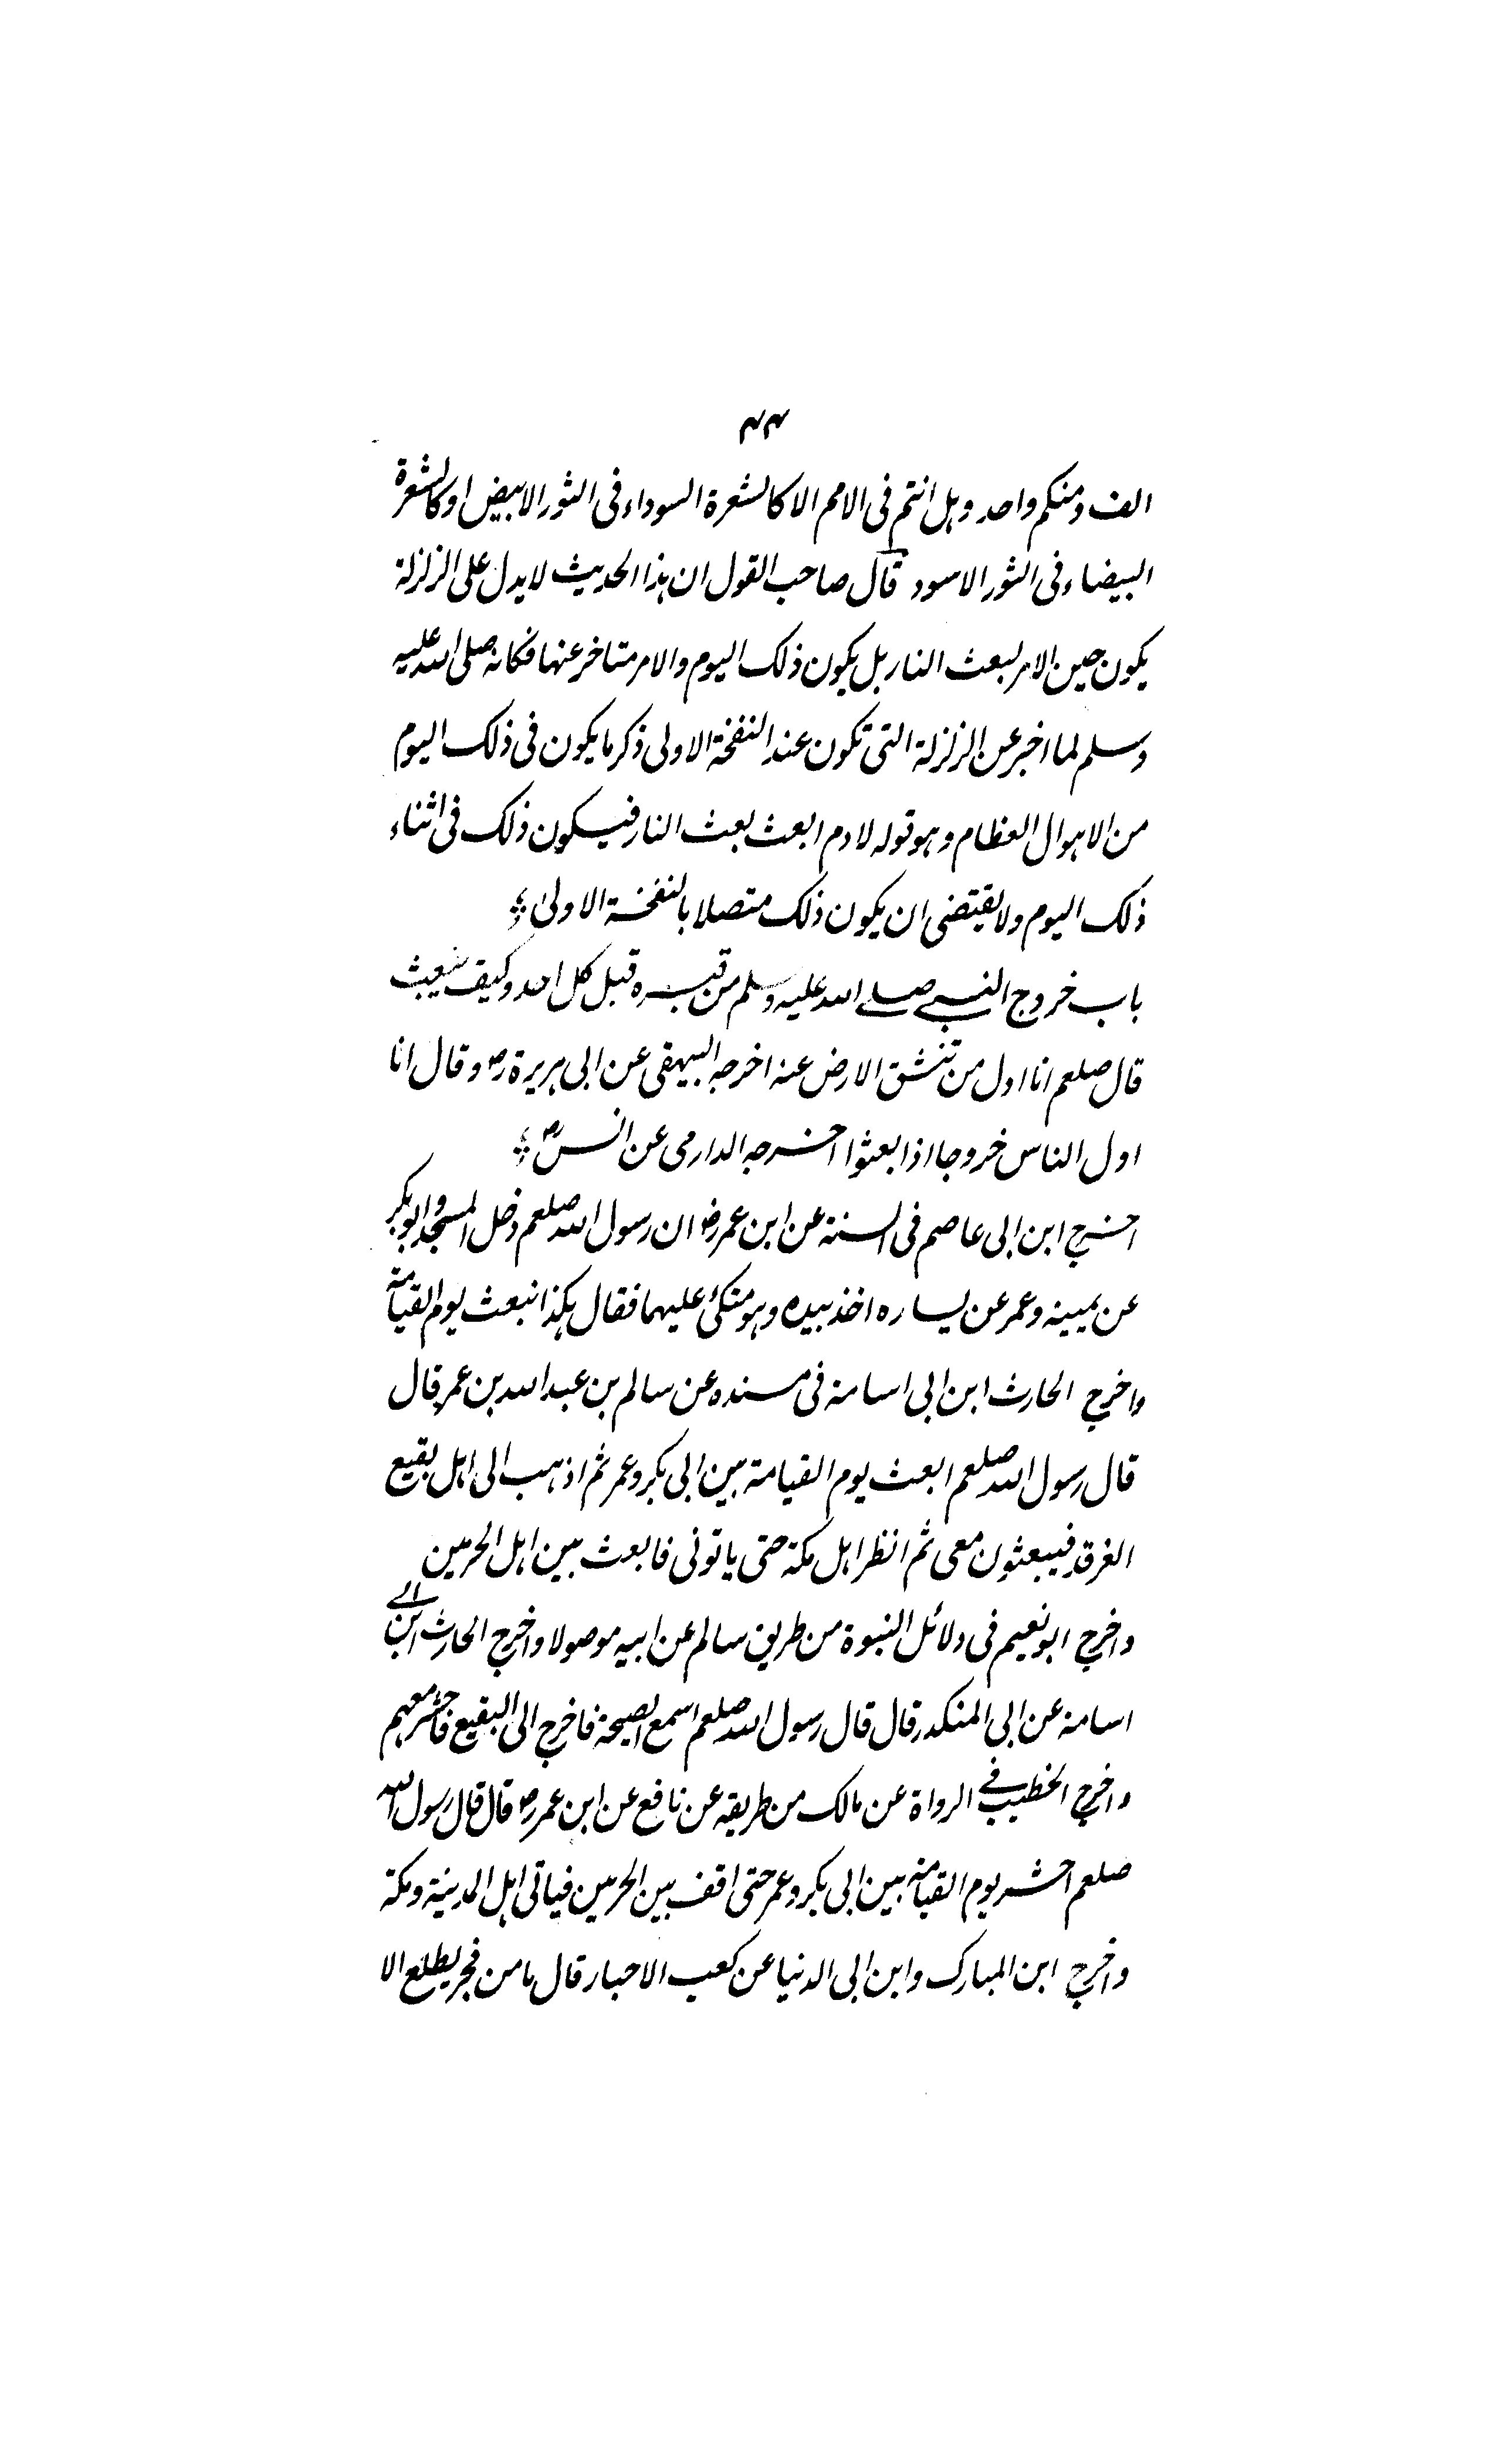 ۴۴
الف ومنكم واحد وهل انتم فى الامم الا كالشعرة السوداء فى الثور الابيض او كالشعرة
البيضاء فى الثور الاسود قال صاحب القول ان هذا الحديث لا يدل على الزلزلة
يكون حين الامر ببعث النار بل يكون ذلك اليوم والامر متاخر عنها فكانه صلى الله عليه
وسلم لما اخبر عن الزلزلة التى تكون عند النفخة الاولى ذكر ما يكون فى ذلك اليوم
من الاهوال العظام وهو قوله لادم ابعث بعث النار فيكون ذلك فى اثناء
ذلك اليوم ولا يقتضى ان يكون ذلك متصلا بالنفخة الاولى
باب خروج النبي صلى الله عليه وسلم من قبره قبل كل احد وكيف يبعث
قال صلعم انا اول من تنشق الارض عنه اخرجه البيهقى عن ابى هريرة رض وقال انا
اول الناس خروجا اذا بعثوا اخرجه الدارمى عن انس رض
اخرج ابن ابى عاصم فى السنة عن ابن عمر رض ان رسول الله صلعم دخل المسجد وابو بكر
عن يمينه وعمر عن يساره اخذ بيده وهو متكئ عليهما فقال هكذا نبعث يوم القيامة
واخرج الحارث ابن ابى اسامة فى مسنده عن سالم بن عبد الله بن عمر قال
قال رسول الله صلعم ابعث يوم القيامة بين ابى بكر وعمر ثم اذهب الى اهل بقيع
الغرقد فيبعثون معى ثم انظر اهل مكة حتى ياتونى فابعث بين اهل الحرمين
واخرج ابو نعيم فى دلائل النبوة من طريق سالم عن ابيه موصولا واخرج الحارث ابن ابي
اسامة عن ابى المنكدر قال قال رسول الله صلعم اسمع الصيحة فاخرج الى البقيع فاحشر معهم
واخرج الخطيب فى الرواة عن مالك من طريقه عن نافع عن ابن عمر رض قال قال رسول الله
صلعم احشر يوم القيامة بين ابى بكر وعمر حتى اقف بين الحرمين فياتى اهل المدينة ومكة
واخرج ابن المبارك وابن ابى الدنيا عن كعب الاحبار قال ما من فجر يطلع الا